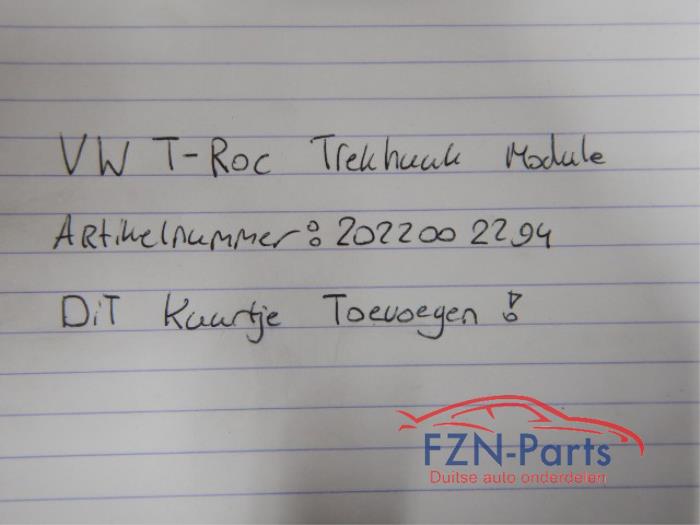 VW T-Roc Trekhaak Module
Artikelnummer: 2022002294
Dit Kaartje Toevoegen!
FZN-Parts
Duitse auto onderdelen